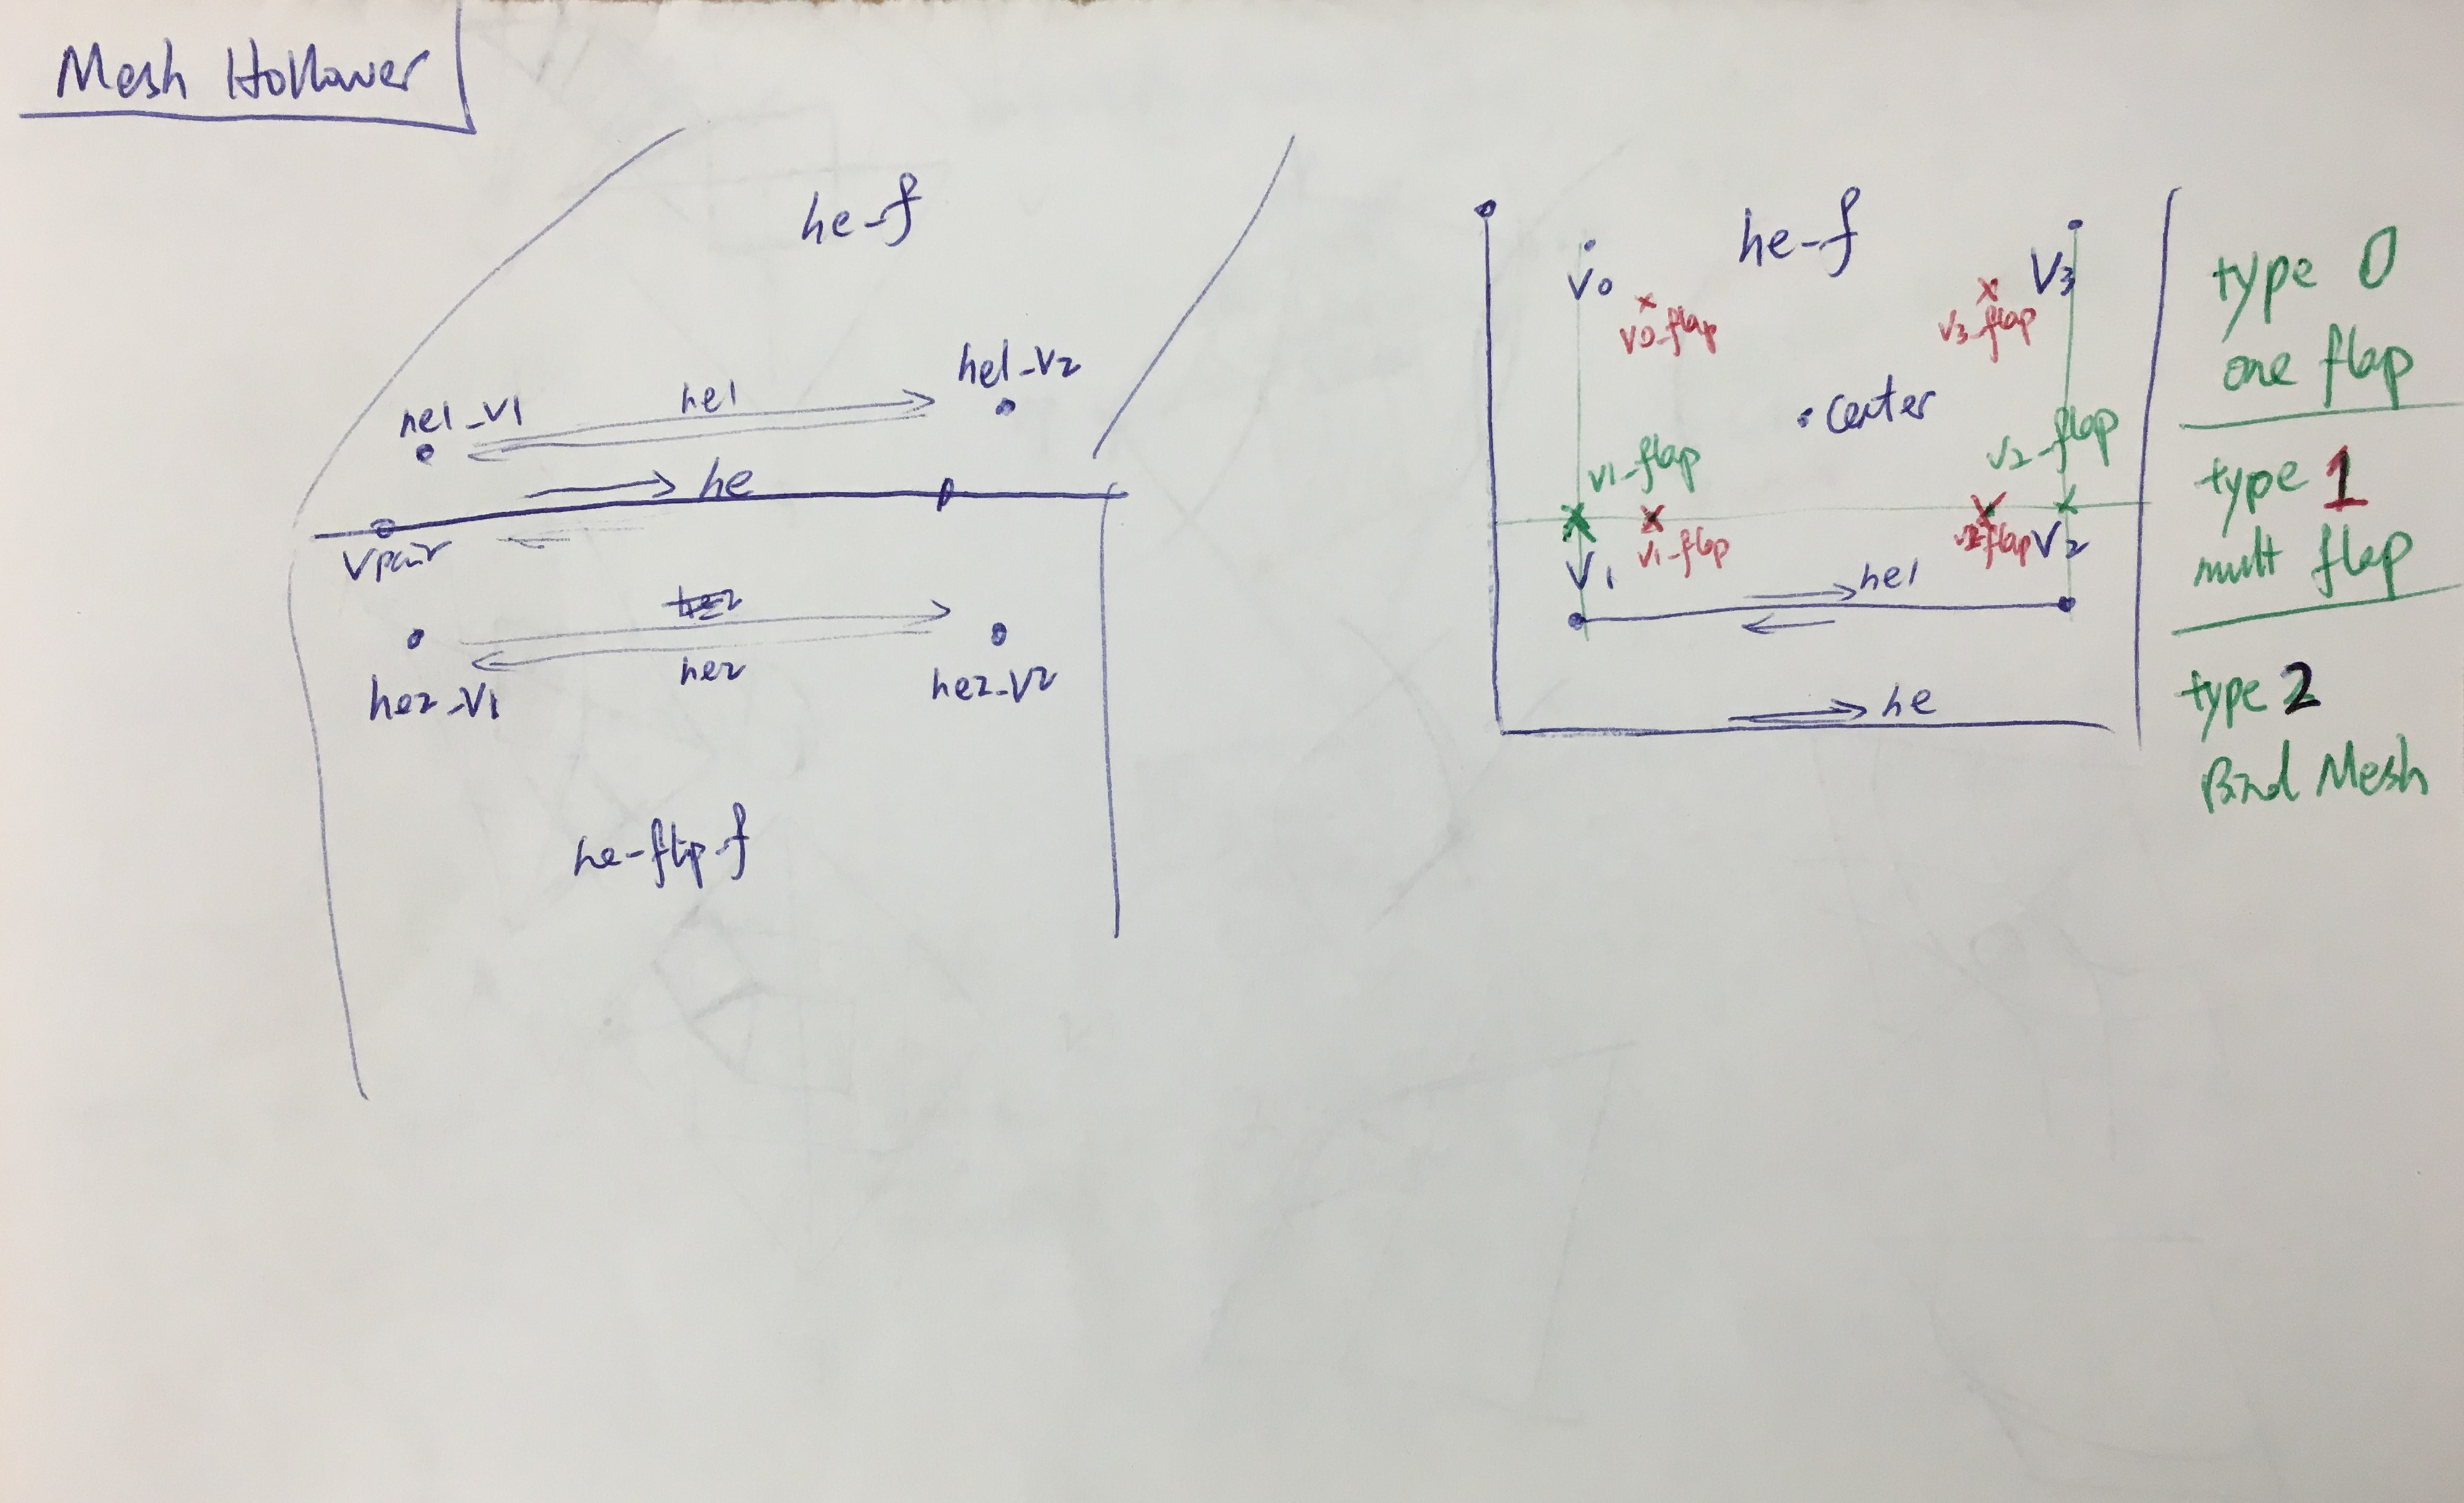 Mesh Hollower
he-f
he1-v2
he1
he1-v1
he
vpair
he2
he2
he2-v1
he2-v2
he-flip-f
he-f
v0
v3
v0-flap
v3-flap
center
v1-flap
v2-flap
v1-flap
v2-flap
v2
v1
he1
he
type 0
one flap
type 1
mult flap
type 2
Bind Mesh